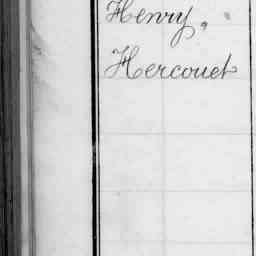 Henry, "
Hercouet